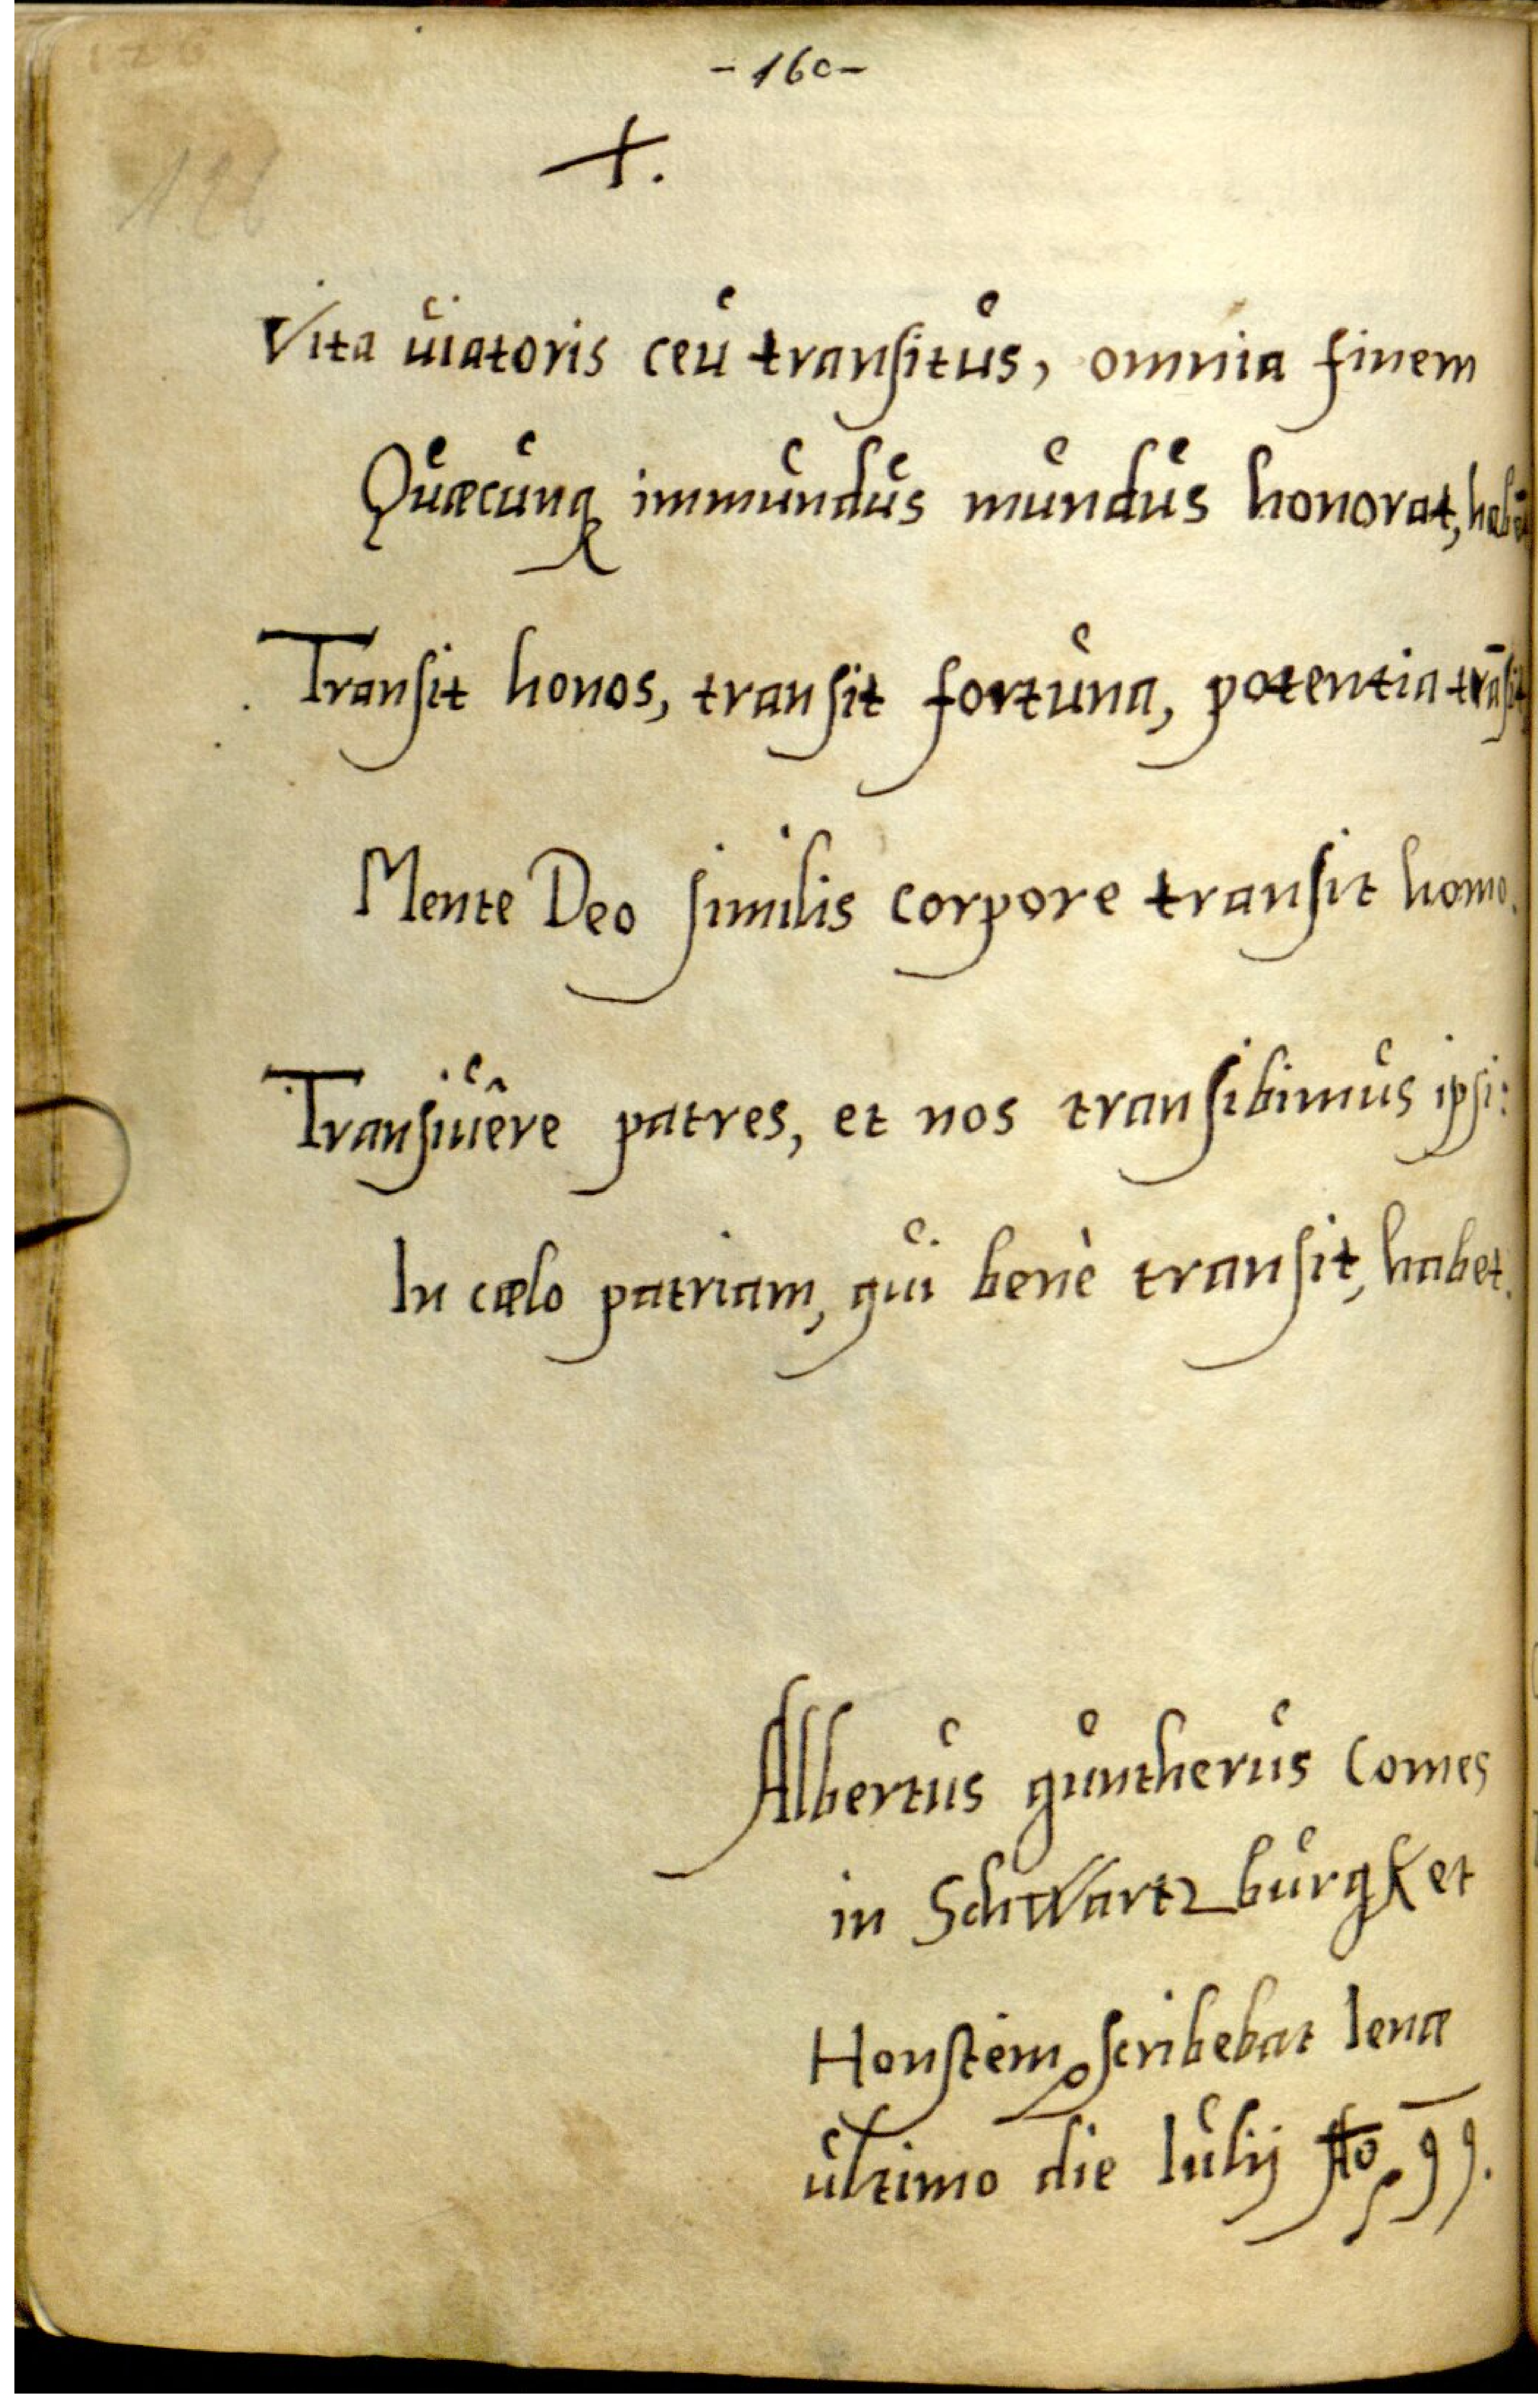 -160-
+.
126
Vita uiatoris ceu transitus, omnia finem
Quæcunq immundus mundus honorat,
Transit honos, transit fortuna, potentia trāsit
Mente Deo similis corpore transit homo.
Transiuêre patres, et nos transibimus ipsi:
In cælo patriam, qui benè transit, habet.
Albertus guntherus Comes
in Schwartzburgk et
Honstein scribebat Ienæ
ultimo die Iulij Ao 99.